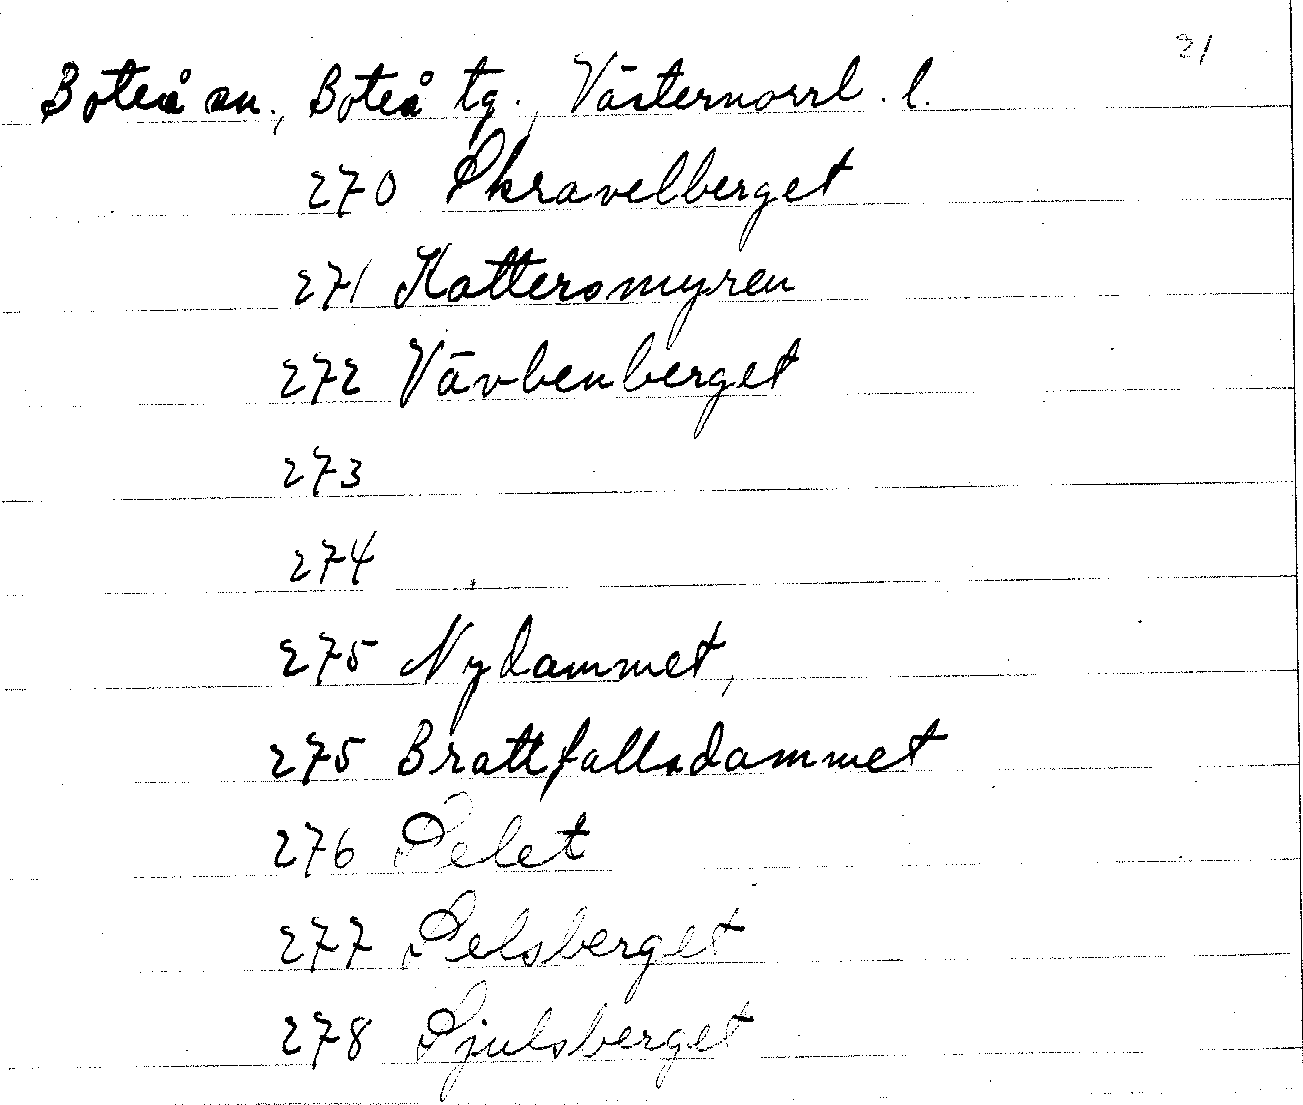 21
Boteå sn., Boteå tg., Västernorrl. l.
270 Skravelberget
271 Kattersmyren
272 Vävbenberget
273
274
275 Nydammet,
275 Brattfallsdammet
276 Selet
277 Selsberget
278 Sjulsberget